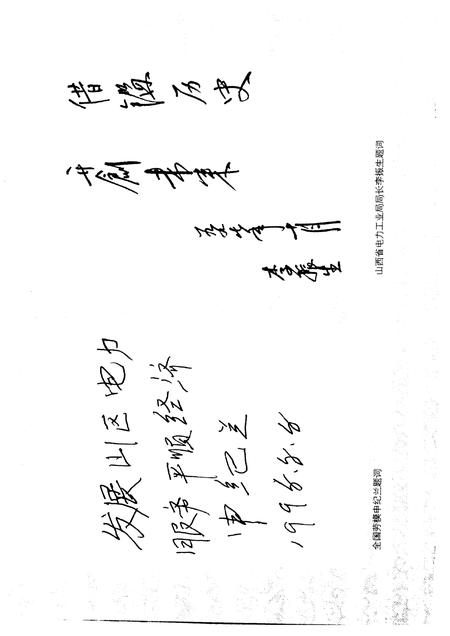 发展山区电力
服务平顺经济
申纪兰
1998.8.8
全国劳模申纪兰题词
借鉴历史
开创未来
年十月
李振生
山西省电力工业局局长李振生题词